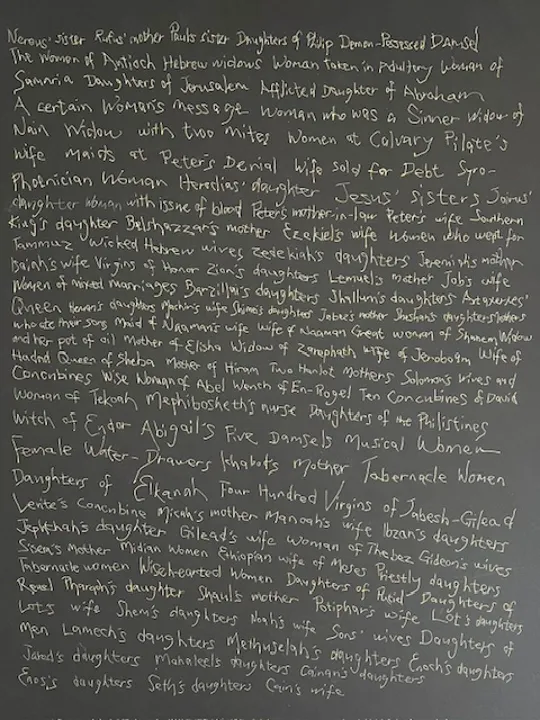 Nereus' sister Rufus' mother Paul's sister Daughters of Philip Demon-Possessed Damsel
The Women of Antioch Hebrew widows Woman taken in Adultery Woman of
Samaria Daughters of Jerusalem Afflicted Daughter of Abraham
A certain Woman's message Woman who was a Sinner Widow of
Nain Widow with two mites Women at Calvary Pilate's
wife Maids at Peter's Denial Wife sold for Debt Syro-
Phoenician Woman Herodias' daughter Jesus' sisters Jairus'
daughter woman with issue of blood Peter's mother-in-law Peter's wife Southern
King's daughter Belshazzar's mother Ezekiel's wife Women who wept for
Tammuz Wicked Hebrew wives Zedekiah's daughters Jeremiah's mother
Isaiah's wife Virgins of Honor Zion's daughters Lemuel's mother Job's wife
Women of mixed marriages Barzillai's daughters Shallum's daughters Artaxerxes'
Queen Heman's daughters Machir's wife Shimei's daughters Jabez's mother Sheshan's daughters Mothers
who ate their sons Maid of Naaman's wife Wife of Naaman Great woman of Shunem Widow
and her pot of oil Mother of Elisha Widow of Zarephath Wife of Jeroboam Wife of
Hadad Queen of Sheba Mother of Hiram Two Harlot Mothers Solomon's Wives and
Concubines Wise Woman of Abel Wench of En-Rogel Ten Concubines of David
Woman of Tekoah Mephibosheth's nurse Daughters of the Philistines
Witch of Endor Abigail's Five Damsels Musical Women
Female Water-Drawers Ichabot's Mother Tabernacle Women
Daughters of Elkanah Four Hundred Virgins of Jabesh-Gilead
Levite's Concubine Micah's mother Manoah's wife Ibzan's daughters
Jephthah's daughter Gilead's wife Woman of Thebez Gideon's wives
Sisera's Mother Midian Women Ethiopian wife of Moses Priestly daughters
Tabernacle women Wisehearted Women Daughters of Putiel Daughters of
Reuel Pharaoh's daughter Shaul's mother Potiphar's wife Lot's daughters
Lot's wife Shem's daughters Noah's wife Sons' wives Daughters of
Men Lamech's daughters Methuselah's daughters Enoch's daughters
Jared's daughters Mahaleel's daughters Cainan's daughters
Enos's daughters Seth's daughters Cain's wife